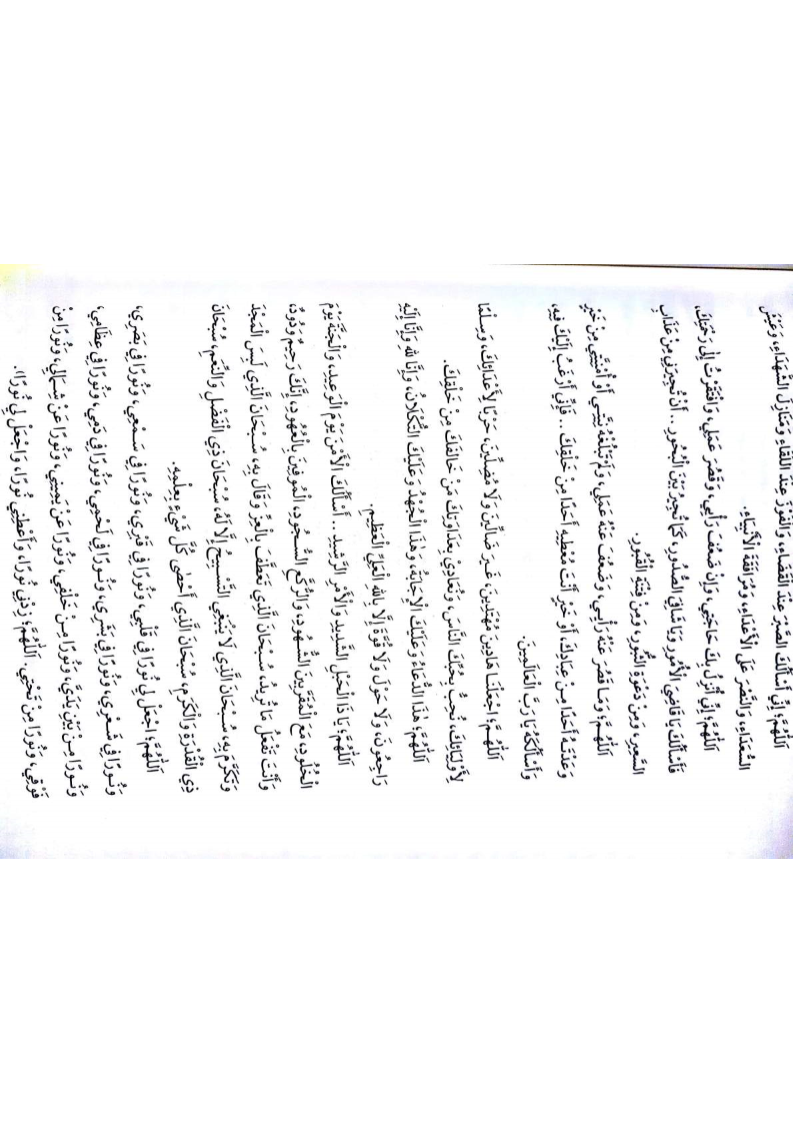 اَللّٰهُمَّ؛ إِنِّي أَسْأَلُكَ الصَّبْرَ عِنْدَ الْقَضَاءِ، وَالْفَوْزَ عِنْدَ اللِّقَاءِ وَمَنَازِلَ الشُّهَدَاءِ، وَعَيْشَ
السُّعَدَاءِ، وَالنَّصْرَ عَلَى الْأَعْدَاءِ، وَمُرَافَقَةَ الْأَنْبِيَاءِ.
اَللّٰهُمَّ؛ إِنِّي أُنْزِلُ بِكَ حَاجَتِي، وَإِنْ ضَعُفَ رَأْيِي، وَقَصُرَ عَمَلِي، وَافْتَقَرْتُ إِلَى رَحْمَتِكَ،
فَأَسْأَلُكَ يَا قَاضِيَ الْأُمُورِ وَيَا شَافِيَ الصُّدُورِ، كَمَا تُجِيرُ بَيْنَ الْبُحُورِ .. أَنْ تُجِيرَنِي مِنْ عَذَابِ
السَّعِيرِ، وَمِنْ دَعْوَةِ الثُّبُورِ، وَمِنْ فِتْنَةِ الْقُبُورِ.
اَللّٰهُمَّ؛ وَمَا قَصُرَ عَنْهُ رَأْيِي، وَضَعُفَ عَنْهُ عَمَلِي، وَلَمْ تَبْلُغْهُ نِيَّتِي أَوْ أُمْنِيَّتِي مِنْ خَيْرٍ
وَعَدْتَهُ أَحَدًا مِنْ عِبَادِكَ، أَوْ خَيْرٍ أَنْتَ مُعْطِيهِ أَحَدًا مِنْ خَلْقِكَ .. فَإِنِّي أَرْغَبُ إِلَيْكَ فِيهِ،
وَأَسْأَلُكَهُ يَا رَبَّ الْعَالَمِينَ.
اَللّٰهُمَّ؛ اجْعَلْنَا هَادِينَ مُهْتَدِينَ، غَيْرَ ضَالِّينَ وَلَا مُضِلِّينَ، حَرْبًا لِأَعْدَائِكَ، وَسِلْمًا
لِأَوْلِيَائِكَ، نُحِبُّ بِحُبِّكَ النَّاسَ، وَنُعَادِي بِعَدَاوَتِكَ مَنْ خَالَفَكَ مِنْ خَلْقِكَ.
اَللّٰهُمَّ؛ هٰذَا الدُّعَاءُ وَعَلَيْكَ الْإِجَابَةُ، وَهٰذَا الْجُهْدُ وَعَلَيْكَ التُّكْلَانُ، وَإِنَّا لِلّٰهِ وَإِنَّا إِلَيْهِ
رَاجِعُونَ، وَلَا حَوْلَ وَلَا قُوَّةَ إِلَّا بِاللهِ الْعَلِيِّ الْعَظِيمِ.
اَللّٰهُمَّ؛ يَا ذَا الْحَبْلِ الشَّدِيدِ وَالْأَمْرِ الرَّشِيدِ .. أَسْأَلُكَ الْأَمْنَ يَوْمَ الْوَعِيدِ، وَالْجَنَّةَ يَوْمَ
الْخُلُودِ، مَعَ الْمُقَرَّبِينَ الشُّهُودِ، وَالرُّكَّعِ السُّجُودِ، الْمُوفِينَ بِالْعُهُودِ، إِنَّكَ رَحِيمٌ وَدُودٌ،
وَأَنْتَ تَفْعَلُ مَا تُرِيدُ، سُبْحَانَ الَّذِي تَعَطَّفَ بِالْعِزِّ وَقَالَ بِهِ، سُبْحَانَ الَّذِي لَبِسَ الْمَجْدَ
وَتَكَرَّمَ بِهِ، سُبْحَانَ الَّذِي لَا يَنْبَغِي التَّسْبِيحُ إِلَّا لَهُ، سُبْحَانَ ذِي الْفَضْلِ وَالنِّعَمِ، سُبْحَانَ
ذِي الْقُدْرَةِ وَالْكَرَمِ، سُبْحَانَ الَّذِي أَحْصَى كُلَّ شَيْءٍ بِعِلْمِهِ.
اَللّٰهُمَّ؛ اجْعَلْ لِي نُورًا فِي قَلْبِي، وَنُورًا فِي قَبْرِي، وَنُورًا فِي سَمْعِي، وَنُورًا فِي بَصَرِي،
وَنُورًا فِي شَعْرِي، وَنُورًا فِي بَشَرِي، وَنُورًا فِي لَحْمِي، وَنُورًا فِي دَمِي، وَنُورًا فِي عِظَامِي،
وَنُورًا مِنْ بَيْنِ يَدَيَّ، وَنُورًا مِنْ خَلْفِي، وَنُورًا عَنْ يَمِينِي، وَنُورًا عَنْ شِمَالِي، وَنُورًا مِنْ
فَوْقِي، وَنُورًا مِنْ تَحْتِي. اَللّٰهُمَّ؛ زِدْنِي نُورًا، وَأَعْطِنِي نُورًا، وَاجْعَلْ لِي نُورًا).